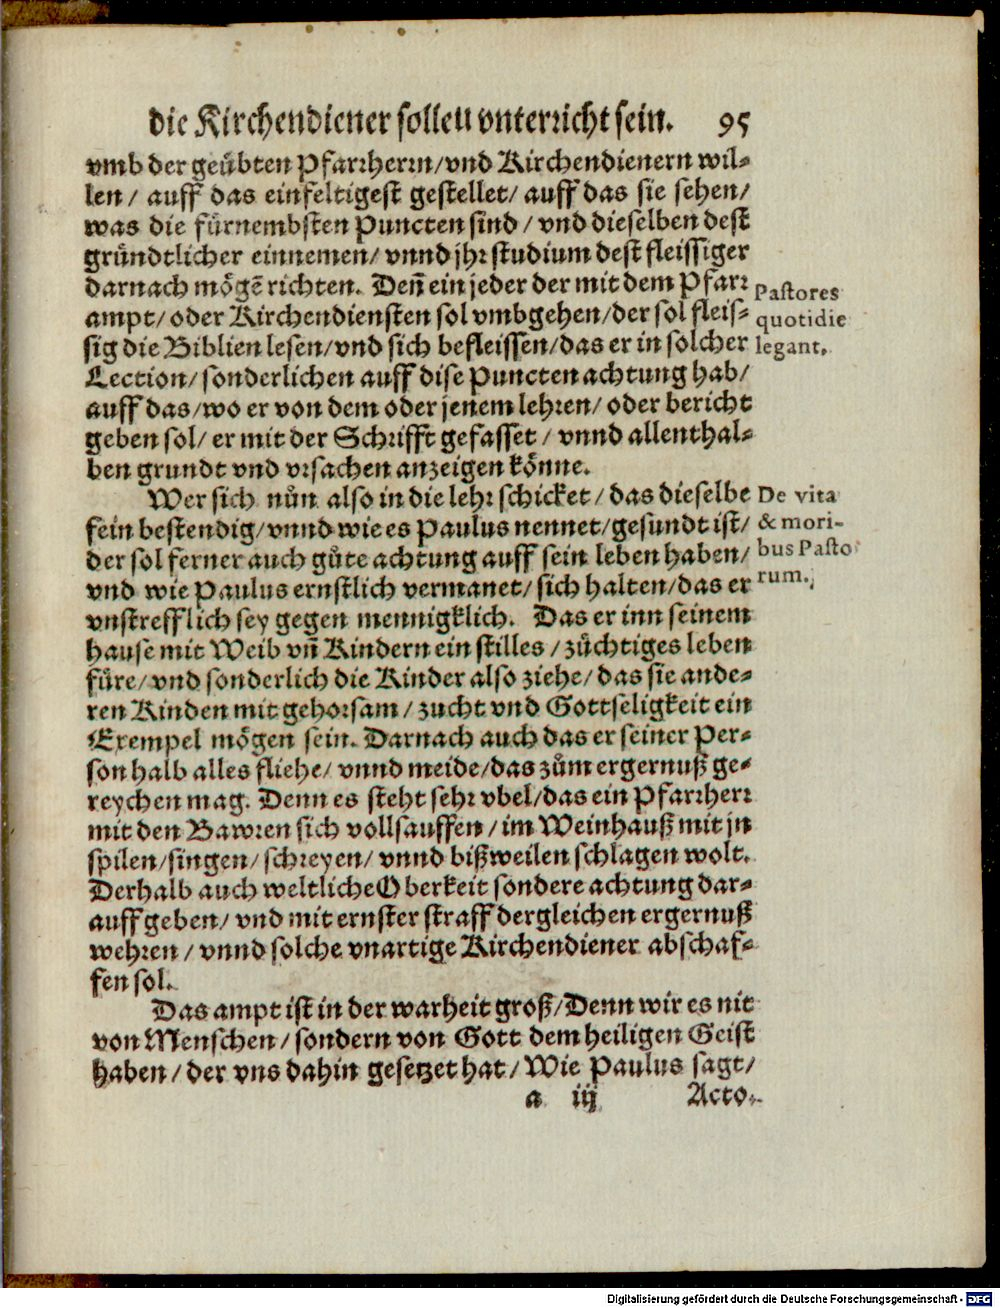 die Kirchendiener sollen vnterricht sein. 95
vmb der geübten Pfarrherrn/vnd Kirchendienern wil-
len/ auff das einfeltigest gestellet/ auff das sie sehen/
was die fürnembsten Puncten sind/ vnd dieselben dest
gründtlicher einnemen/ vnnd jhr studium dest fleissiger
darnach mögẽ richten. Deñ ein jeder der mit dem Pfarr
ampt/ oder Kirchendiensten sol vmbgehen/der sol fleis-
sig die Biblien lesen/vnd sich befleissen/das er in solcher
Lection/ sonderlichen auff dise Puncten achtung hab/
auff das/wo er von dem oder jenem lehren/ oder bericht
geben sol/ er mit der Schrifft gefasset/ vnnd allenthal-
ben grundt vnd vrsachen anzeigen könne.
Pastores
quotidie
legant.
Wer sich nůn also in die lehr schicket/ das dieselbe
fein bestendig/vnnd wie es Paulus nennet/gesundt ist/
der sol ferner auch gůte achtung auff sein leben haben/
vnd wie Paulus ernstlich vermanet/ sich halten/das er
vnstrefflich sey gegen mennigklich. Das er inn seinem
hause mit Weib vñ Kindern ein stilles/ züchtiges leben
füre/ vnd sonderlich die Kinder also ziehe/ das sie ande-
ren Kinden mit gehorsam/ zucht vnd Gottseligkeit ein
Exempel mögen sein. Darnach auch das er seiner Per-
son halb alles fliehe/ vnnd meide/das zům ergernuß ge-
reychen mag. Denn es steht sehr vbel/das ein Pfarrherr
mit den Bawren sich vollsauffen/ im Weinhauß mit jn
spilen/singen/ schreyen/ vnnd bißweilen schlagen wolt.
Derhalb auch weltliche Oberkeit sondere achtung dar-
auff geben/ vnd mit ernster straff dergleichen ergernuß
wehren/ vnnd solche vnartige Kirchendiener abschaf-
fen sol.
De vita
& mori-
bus Pasto
rum.
Das ampt ist in der warheit groß/Denn wir es nit
von Menschen/ sondern von Gott dem heiligen Geist
haben/ der vns dahin gesetzet hat/ Wie Paulus sagt/
a iij Acto.
Digitalisierung gefördert durch die Deutsche Forschungsgemeinschaft - DFG